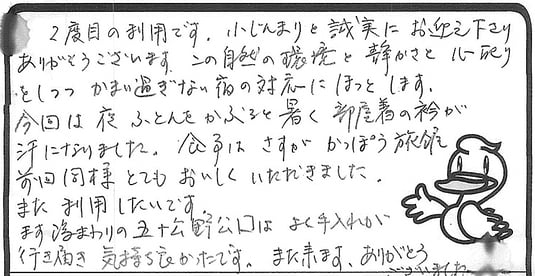 2度目の利用です。小じんまりと誠実にお迎え下さり
ありがとうございます。この自然の環境と静かさと心配り
をしつつかまい過ぎない宿の対応にほっとします。
今回は夜ふとんをかぶると暑く部屋着の衿が
汗になりました。食事はさすがかっぽう旅館
前回同様とてもおいしくいただきました。
また利用したいです。
まわりの五十公野公園はよく手入れが
行き届き気持ち良かったです。また来ます。ありがとう
ございました